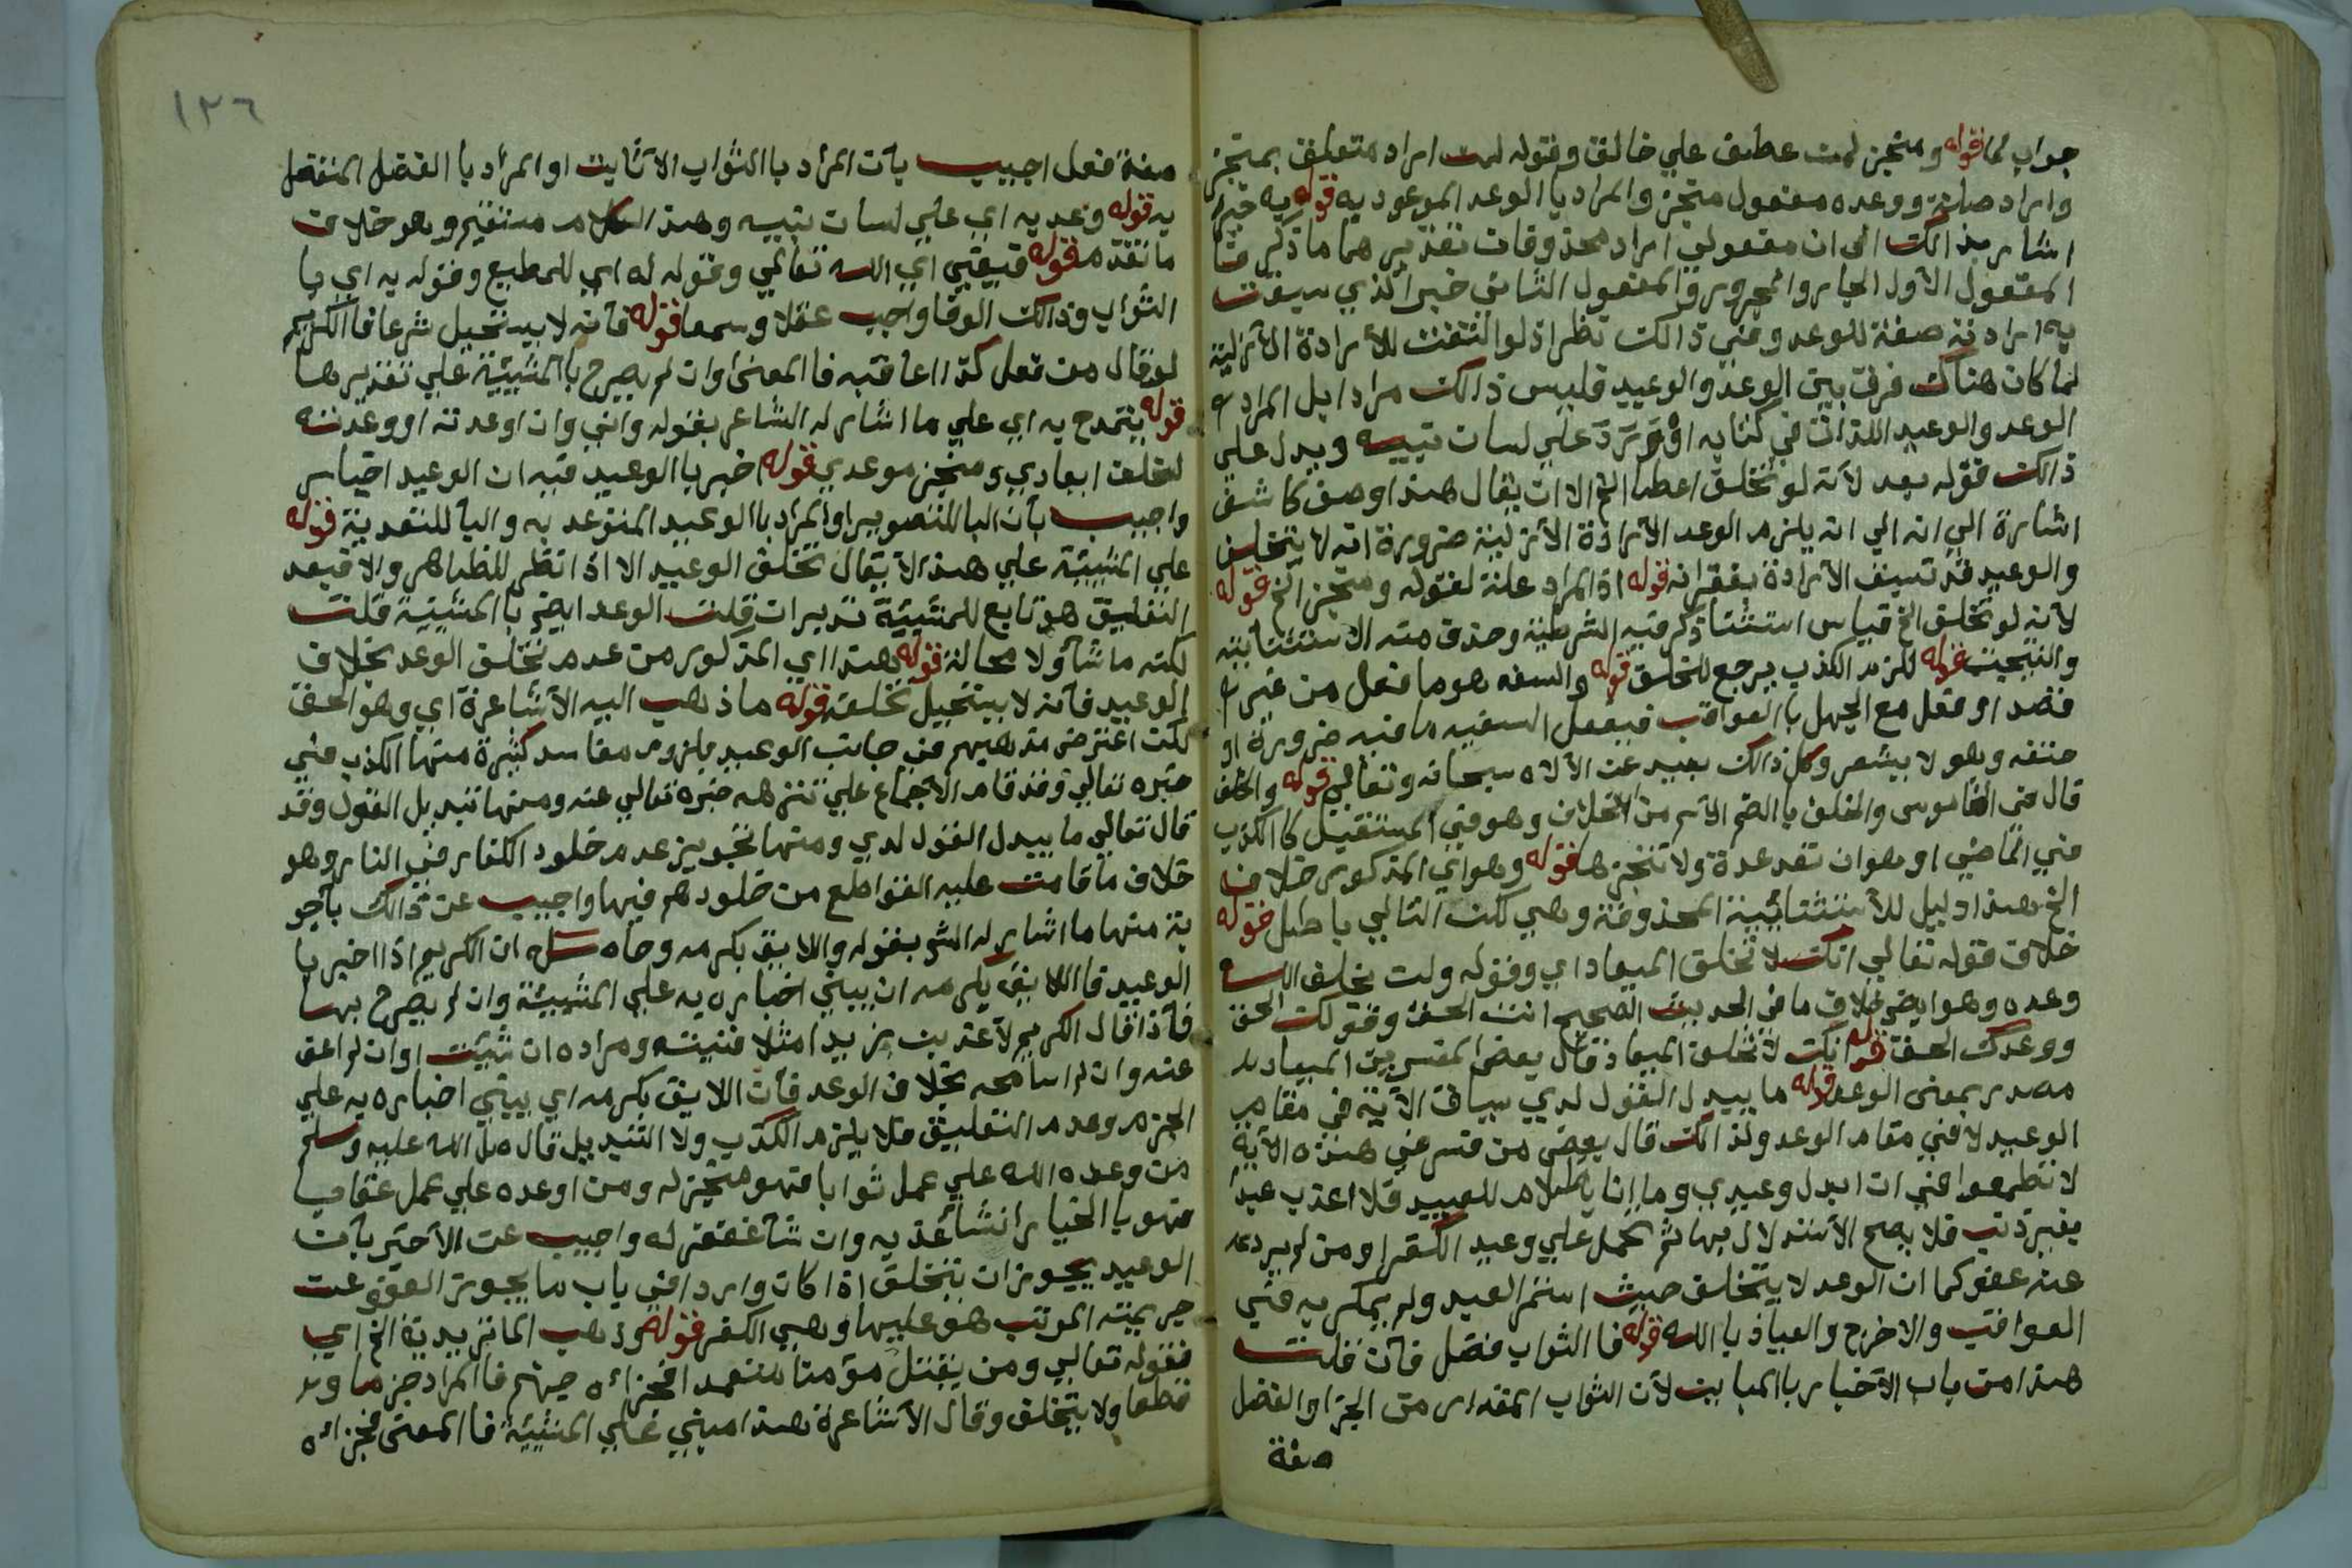 جواب لما قوله ومنجز لمن عطف علي خالق وقوله لمن اراد متعلق بمنجز
واراد صلة ووعده مفعول منجز والمراد با الوعد الموعود به قوله به خيرا
اشار بذالك الى ان مفعولي اراد محذوفان تقديرهما ما ذكر فتا
المفعول الاول الجار والمجرور والمفعول الثاني خيرا الذي سيقت
به ارادته صفة للوعد وفي ذالك نظر اذ لو التفت للأرادة الأزلية
لما كان هناك فرق بين الوعد والوعيد فليس ذالك مرادا بل المراد
الوعد والوعيد اللذان في كتابه او ورد علي لسان نبيه ويدل علي
ذالك قوله بعد لأنه لو تخلف اعطا الخ الا ان يقال هذا وصف كاشف
اشارة الي انه الي انه يلزم الوعد الأرادة الأزلية ضرورة انه لا يتخلف
والوعيد قد تسبق الأرادة بغفرانه قوله اذ المراد علة لقوله ومنجز الخ قوله
لأنه لو تخلف الخ قياس استثنا ذكر فيه الشرطية وحذف منه الاستثنائية
والنتيجة قوله للزم الكذب يرجع للتخلف قوله والسفه هو ما فعل من غير
قصد او فعل مع الجهل با العواقب فيفعل السفيه ما فيه ضروره او
حتفه وهو لا يشعر وكل ذالك بعيد عن الألاه سبحانه وتعالي قوله والخلف
قال في القاموس والخلف با الضم الأسم من الأخلاف وهو في المستقبل كا الكذب
في الماضي او هو ان تعد عدة ولا تنجزها قوله وهو اي المذكور خلاف
الخ هذا دليل للأستثنائية المحذوفة وهي لكن التالي باطل قوله
خلاف قوله تعالي انك لا تخلف الميعاد اي وقوله ولن يخلف الله
وعده وهو ايض خلاف ما في الحديث الصحيح انت الحق وقولك الحق
ووعدك الحق قوله انك لا تخلف الميعاد قال بعض المفسرين الميعاد
مصدر بمعنى الوعد قوله ما يبدل القول لدي سياق الآية في مقام
الوعيد لا في مقام الوعد ولذالك قال بعض من فسر في هذه الآية
لا تطمعوا في ان ابدل وعيدي وما انا بظلام للعبيد فلا اعذب عبدا
بغير ذنب فلا يصح الأستدلال بها ثم تحمل علي وعيد الكفر او من لم يرد
عنه عفو كما ان الوعد لا يتخلف حيث استمر العبد ولم يمكر به في
العواقب والا خرج والعياذ با الله قوله فا الثواب فضل فأن قلت
هذا من باب الأخبار با المباين لأن الثواب المقدار من الجزا والفضل
صفة
١٢٦
صفة فعل اجيب بأن المراد با الثواب الأثابت او المراد با الفضل المتفضل
به قوله وعد به اي علي لسان نبيه وهذا الكلام مستقيم وهو خلاف
ما تقدم قوله فيفي اي الله تعالي وقوله له اي للمطيع وقوله به اي با
الثواب وذالك الوفا واجب عقلا وسمعا قوله فأنه لا يستحيل شرعا فا الكريم
لو قال من فعل كذا اعاقبه فا المعنى وان لم يصرح با المشيئة علي تقديرها
قوله يتمدح به اي علي ما اشار له الشاعر بقوله واني وان اوعدته او وعدته
لمخلف ايعادي ومنجز موعدي قوله اخبر با الوعيد فيه ان الوعيد اخبار
واجيب بأن البا للتصوير او المراد با الوعيد المتوعد به والبا للتعدية قوله
علي المشيئة علي هذا لا يقال تخلف الوعيد الا اذا نظر للظاهر والا فبعد
التعليق هو تابع للمشيئة تدبرات قلت الوعد ايض با المشيئة قلت
لكنه ما شأ ولا محالة قوله هذا اي المذكور من عدم تخلف الوعد بخلاف
الوعيد فأنه لا يستحيل تخلفه قوله ما ذهب اليه الأشاعرة اي وهو الحق
لكن اعترض مذهبهم في جانب الوعيد بلزوم مفاسد كثيرة منها الكذب في
خبره تعالي وقد قام الأجماع علي تنزهه خبره تعالي عنه ومنها تبديل القول وقد
قال تعالي ما يبدل القول لدي ومنها تجويز عدم خلود الكفار في النار وهو
خلاف ما قامت عليه القواطع من خلودهم فيها واجيب عن ذالك بأجو
بة منها ما اشار له الش بقوله واللايق بكرمه وحاصله ان الكريم اذا اخبر با
الوعيد فا اللايق بكرمه ان يبني اخباره به علي المشيئة وان لم يصرح بها
فأذا قال الكريم لأعذبن زيدا مثلا فنيته ومراده ان شئت او ان لم اعف
عنه وان لم اسامحه بخلاف الوعد فأن اللايق بكرمه اي يبني اخباره به علي
الجزم وعدم التعليق فلا يلزم الكذب ولا التبديل قال صل الله عليه وسلم
من وعده الله علي عمل ثوابا فهو منجز له ومن اوعده علي عمل عقابا
فهو با الخيار ان شأ عذبه وان شأ غفر له واجيب عن الأخير بأن
الوعيد يجوز ان يتخلف اذا كان واردا في باب ما يجوز العفو عن
جريمته المرتب هو عليها وهي الكفر قوله وذهب الماتريدية الخ اي
فقوله تعالي ومن يقتل مؤمنا متعمدا فجزائه جهنم فا المراد جزما و
قطعا ولا يتخلف وقال الأشاعرة هذا مبني علي المشيئة فا المعنى فجزائه